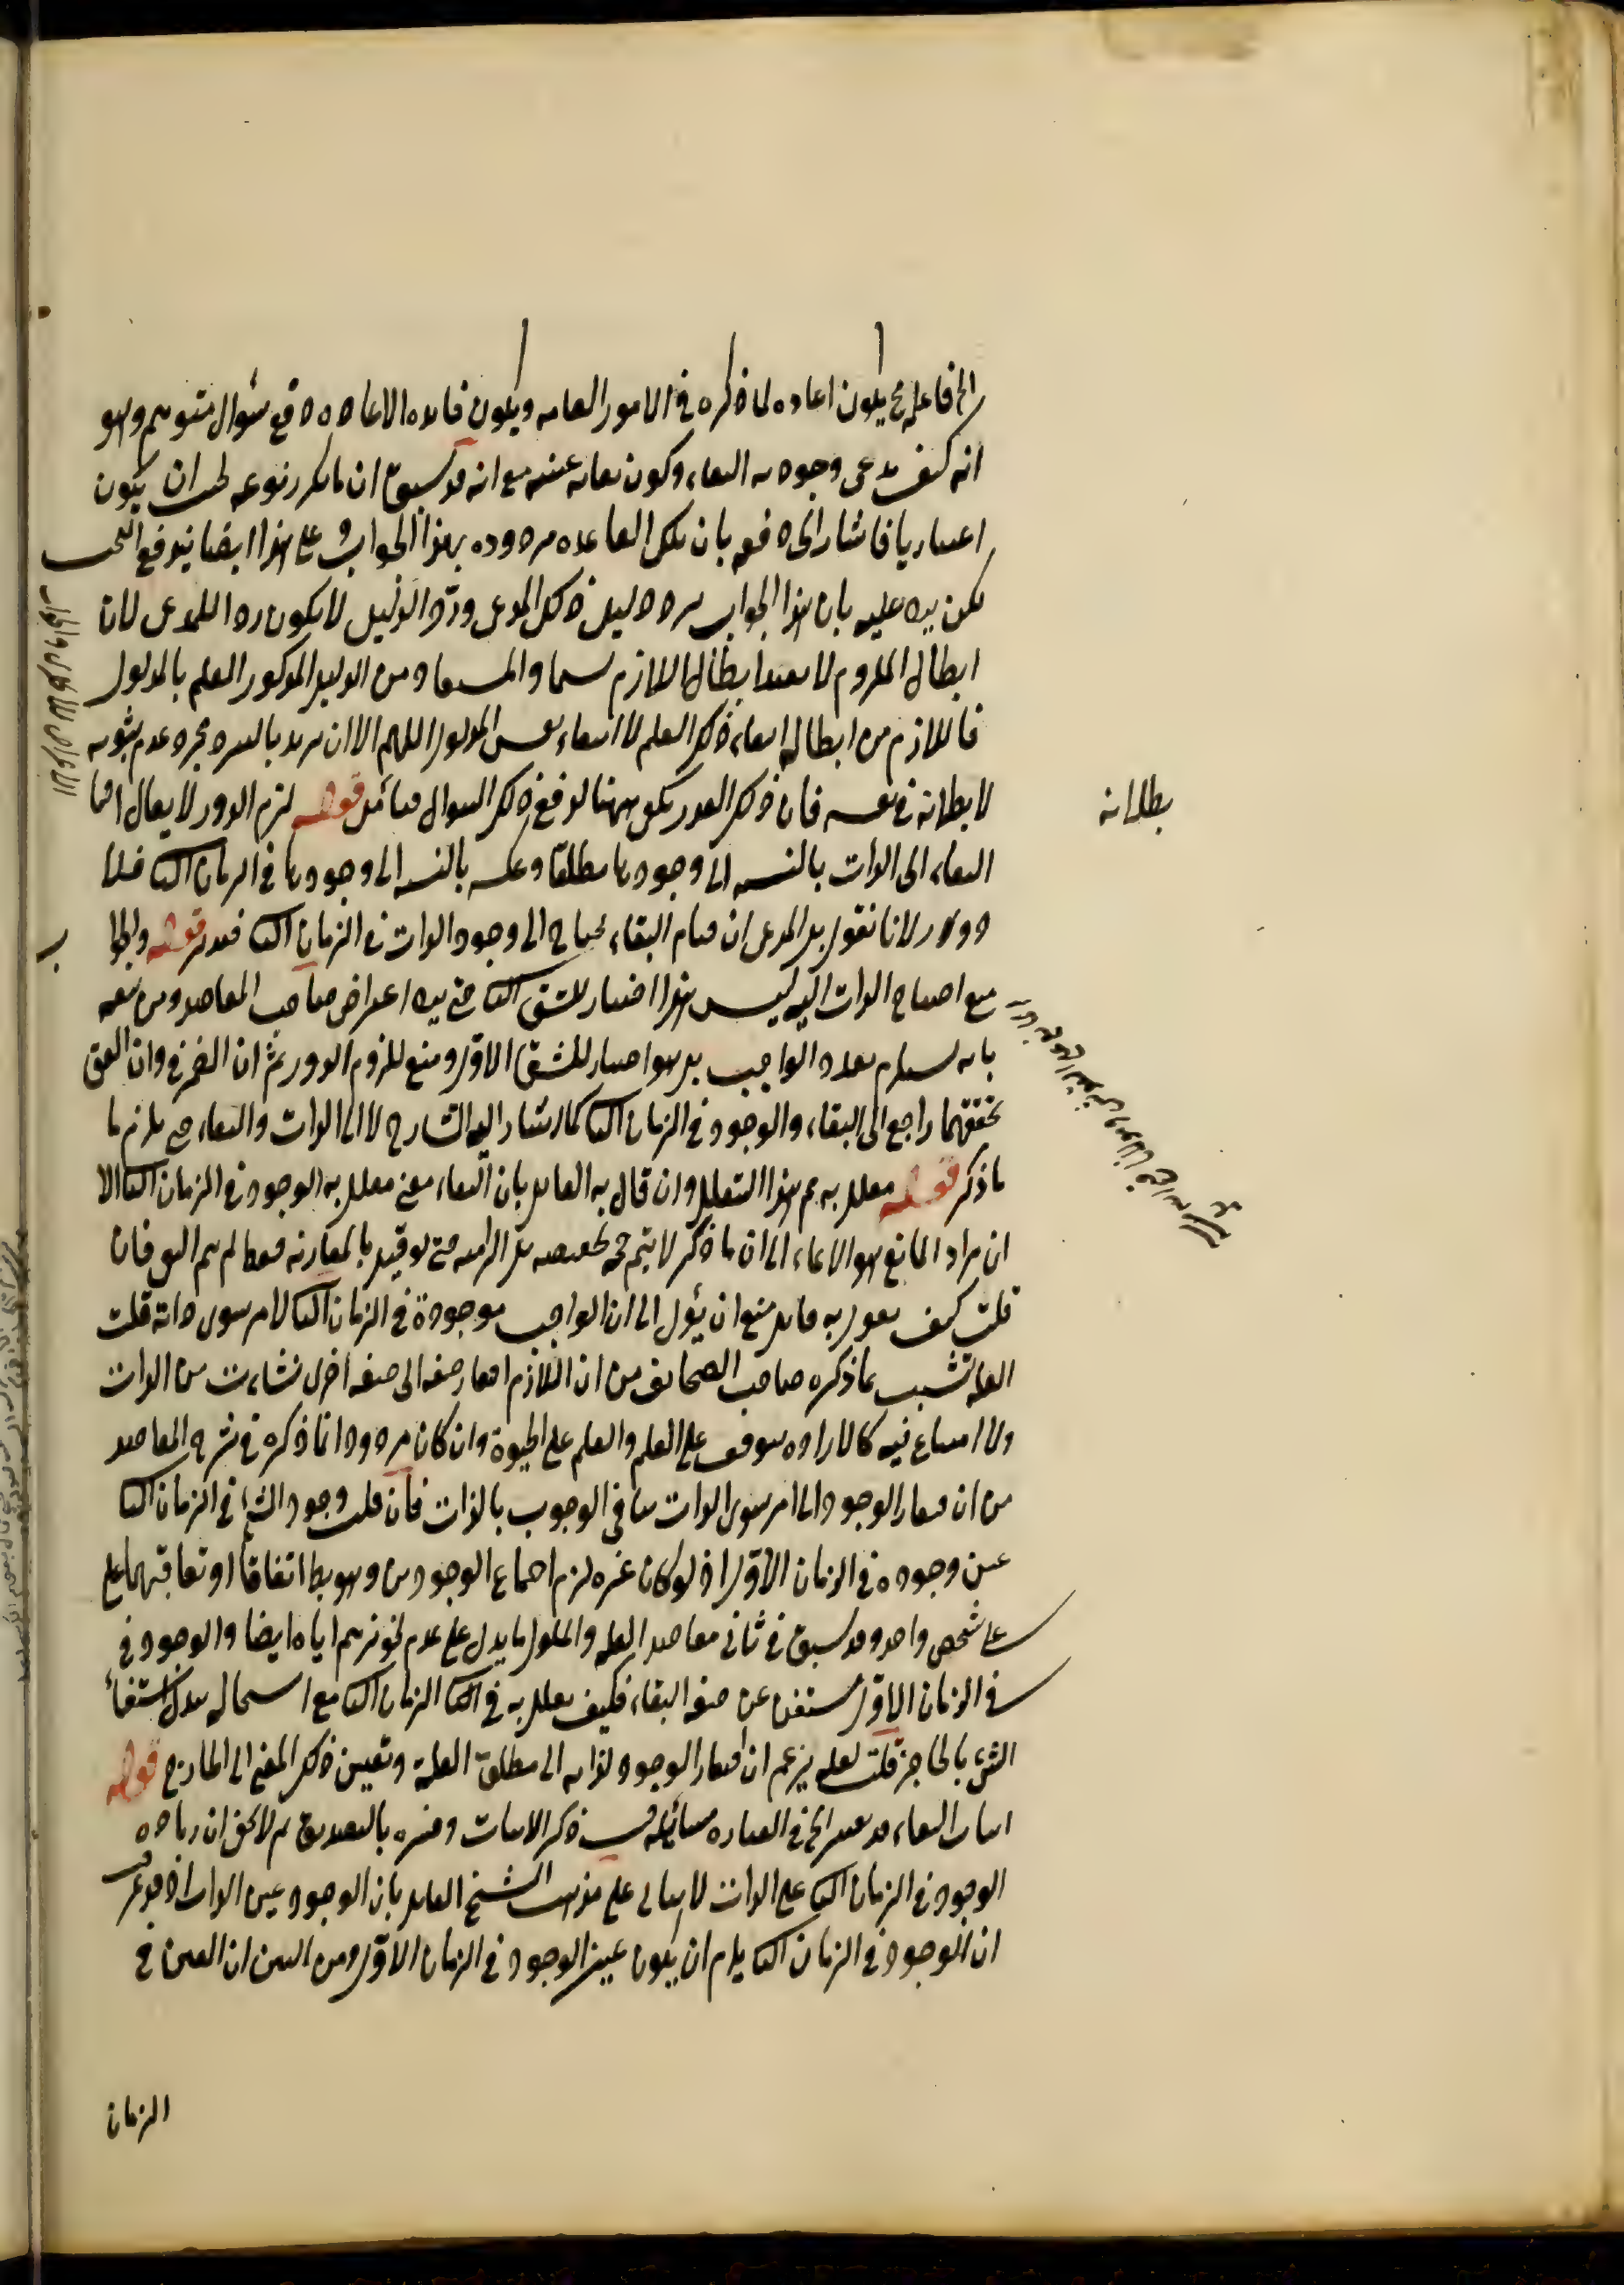 الى فاعله فح يكون اعاده لما ذكره في الامور العامه ويكون فائده الاعاده دفع سؤال متوهم وهو
انه كيف يدعى وجوديه البقاء وكون بقائه عينه مع انه قد سبق ان ما يكرر نوعه يجب ان يكون
اعتباريا فاشار الى دفعه بان تلك القاعده مردوده بهذا الجواب وعلى هذا ايضا يندفع البحث
لكن يرد عليه بان هذا الجواب يرد دليل ذلك المدعى ورد الدليل لا يكون ردا للمدعى لان
ابطال الملزوم لا يفيد ابطال اللازم سيما والمستفاد من الدليل المذكور العلم بالمدلول
فاللازم من ابطاله انتفاء ذلك العلم لا انتفاء نفس المدلول اللهم الا ان يريد بالرد مجرد عدم ثبوته
لا بطلانه في نفسه فان ذلك القدر يكفي ههنا لدفع ذلك السؤال فتأمل قوله لزم الدور لا يقال احتياج
البقاء الى الذات بالنسبه الى وجودها مطلقا وعكسه بالنسبه الى وجودها في الزمان الثاني فلا
دور لانا نقول بل المدعى ان قيام البقاء يحتاج الى وجود الذات في الزمان الثاني فتدبر قوله والجواب
منع احتياج الذات اليه ليس هذا اختيار للشق الثاني حتى يرد اعتراض صاحب المقاصد ومن تبعه
بانه يستلزم تعدد الواجب بل هو اختيار للشق الاول ومنع للزوم الدور ثم ان الضمير في وان اتفق
تحققهما راجع الى البقاء والوجود في الزمان الثاني كما اشار اليه الشارح لا الى الذات والبقاء حتى يلزم ما
ما ذكر قوله معلل به ثم هذا التعليل وان قال به القائل بان البقاء معنى معلل به الوجود في الزمان الثاني الا
ان مراد المانع هو الايماء الى ان ما ذكر لا يتم حجة تحقيقيه بل الزاميه حتى لو قيل بالمقارنه فقط لم يتم النفي فان
قلت كيف يقول به قائل مع ان يؤل الى ان الواجب موجودة في الزمان الثاني لامر سوى ذاته قلت
لعله تشبث بما ذكره صاحب الصحائف من ان اللازم افتقار صفه الى صفه اخرى نشأت من الذات
ولا امتناع فيه كالاراده يتوقف على العلم والعلم على الحيوة وان كان مردودا بما ذكره في شرح المقاصد
من ان افتقار الوجود الى امر سوى الذات ينافي الوجوب بالذات فان قلت وجود الشئ في الزمان الثاني
عين وجوده في الزمان الاول اذ لو كان غيره لزم اجتماع الوجودين وهو بط اتفاقا او تعاقبهما على
على شخص واحد وقد سبق في ثاني مقاصد العله والمعلول ما يدل على عدم تجويزهم اياه ايضا والوجود في
في الزمان الاول مستغن عن صفه البقاء فكيف يعلل به في الزمان الثاني مع استحاله تبدل استغنا
الشئ بالحاجة قلت لعله يزعم ان افتقار الوجود لذاته الى مطلق العلة وتعيين ذلك المعنى الى الخارج قوله
اثبات البقاء قد يعبر الخ في العباره مسامحه حيث ذكر الاثبات وفسره بالتصديق ثم لا يخفى ان زياده
الوجود في الزمان الثاني على الذات لا يتاتى على مذهب الشيخ القائل بان الوجود عين الذات اذ قد عرفت
ان الوجود في الزمان الثاني يلزم ان يكون عين الوجود في الزمان الاول ومن البين ان العين في
بطلانه
الزمان